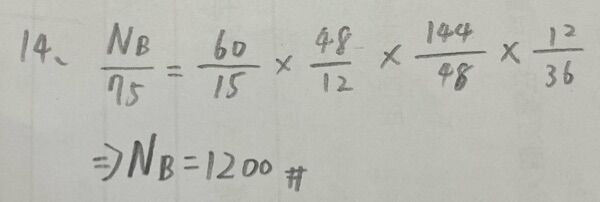 14、 N_B/75 = 60/15 × 48/12 × 144/48 × 12/36
⇒ N_B = 1200 #